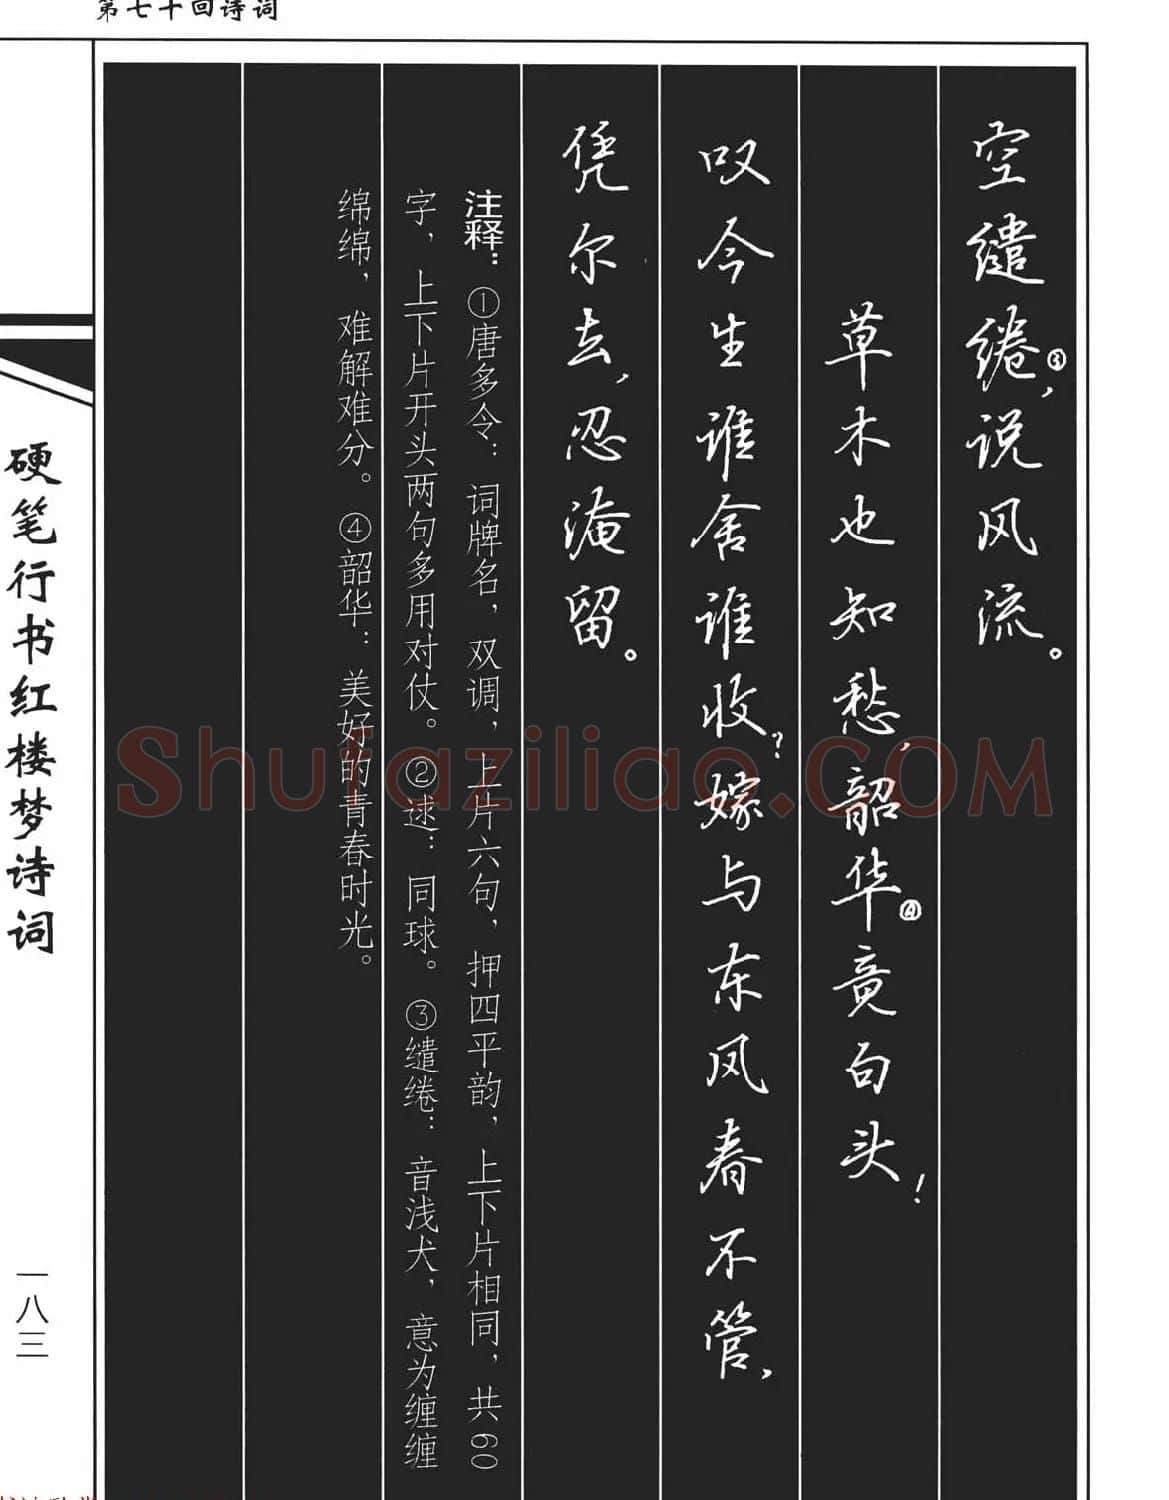 第七十回诗词
空缱绻③,说风流。
草木也知愁,韶华④竟白头!
叹今生谁舍谁收?嫁与东风春不管,
凭尔去,忍淹留。
注释:①唐多令:词牌名,双调,上片六句,押四平韵,上下片相同,共60
字,上下片开头两句多用对仗。②逑:同球。③缱绻:音浅犬,意为缠缠
绵绵,难解难分。④韶华:美好的青春时光。
硬笔行书红楼梦诗词
一八三
Shufaziliao.COM